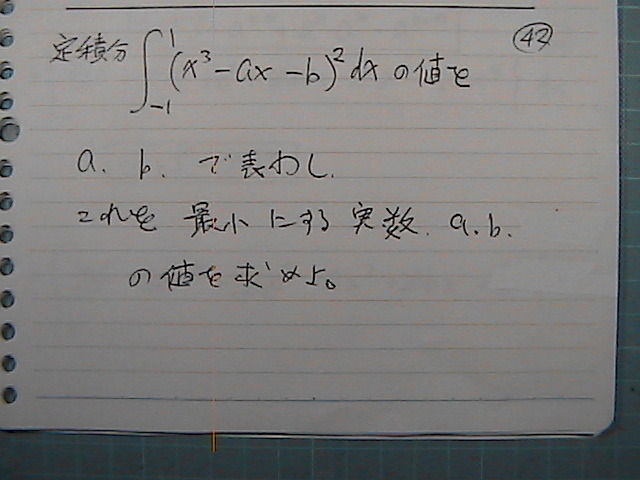 ㊷
定積分 ∫_{-1}^{1} (x³ - ax - b)² dx の値を
a. b. で表わし.
これを 最小にする 実数. a.b.
の値を求めよ。